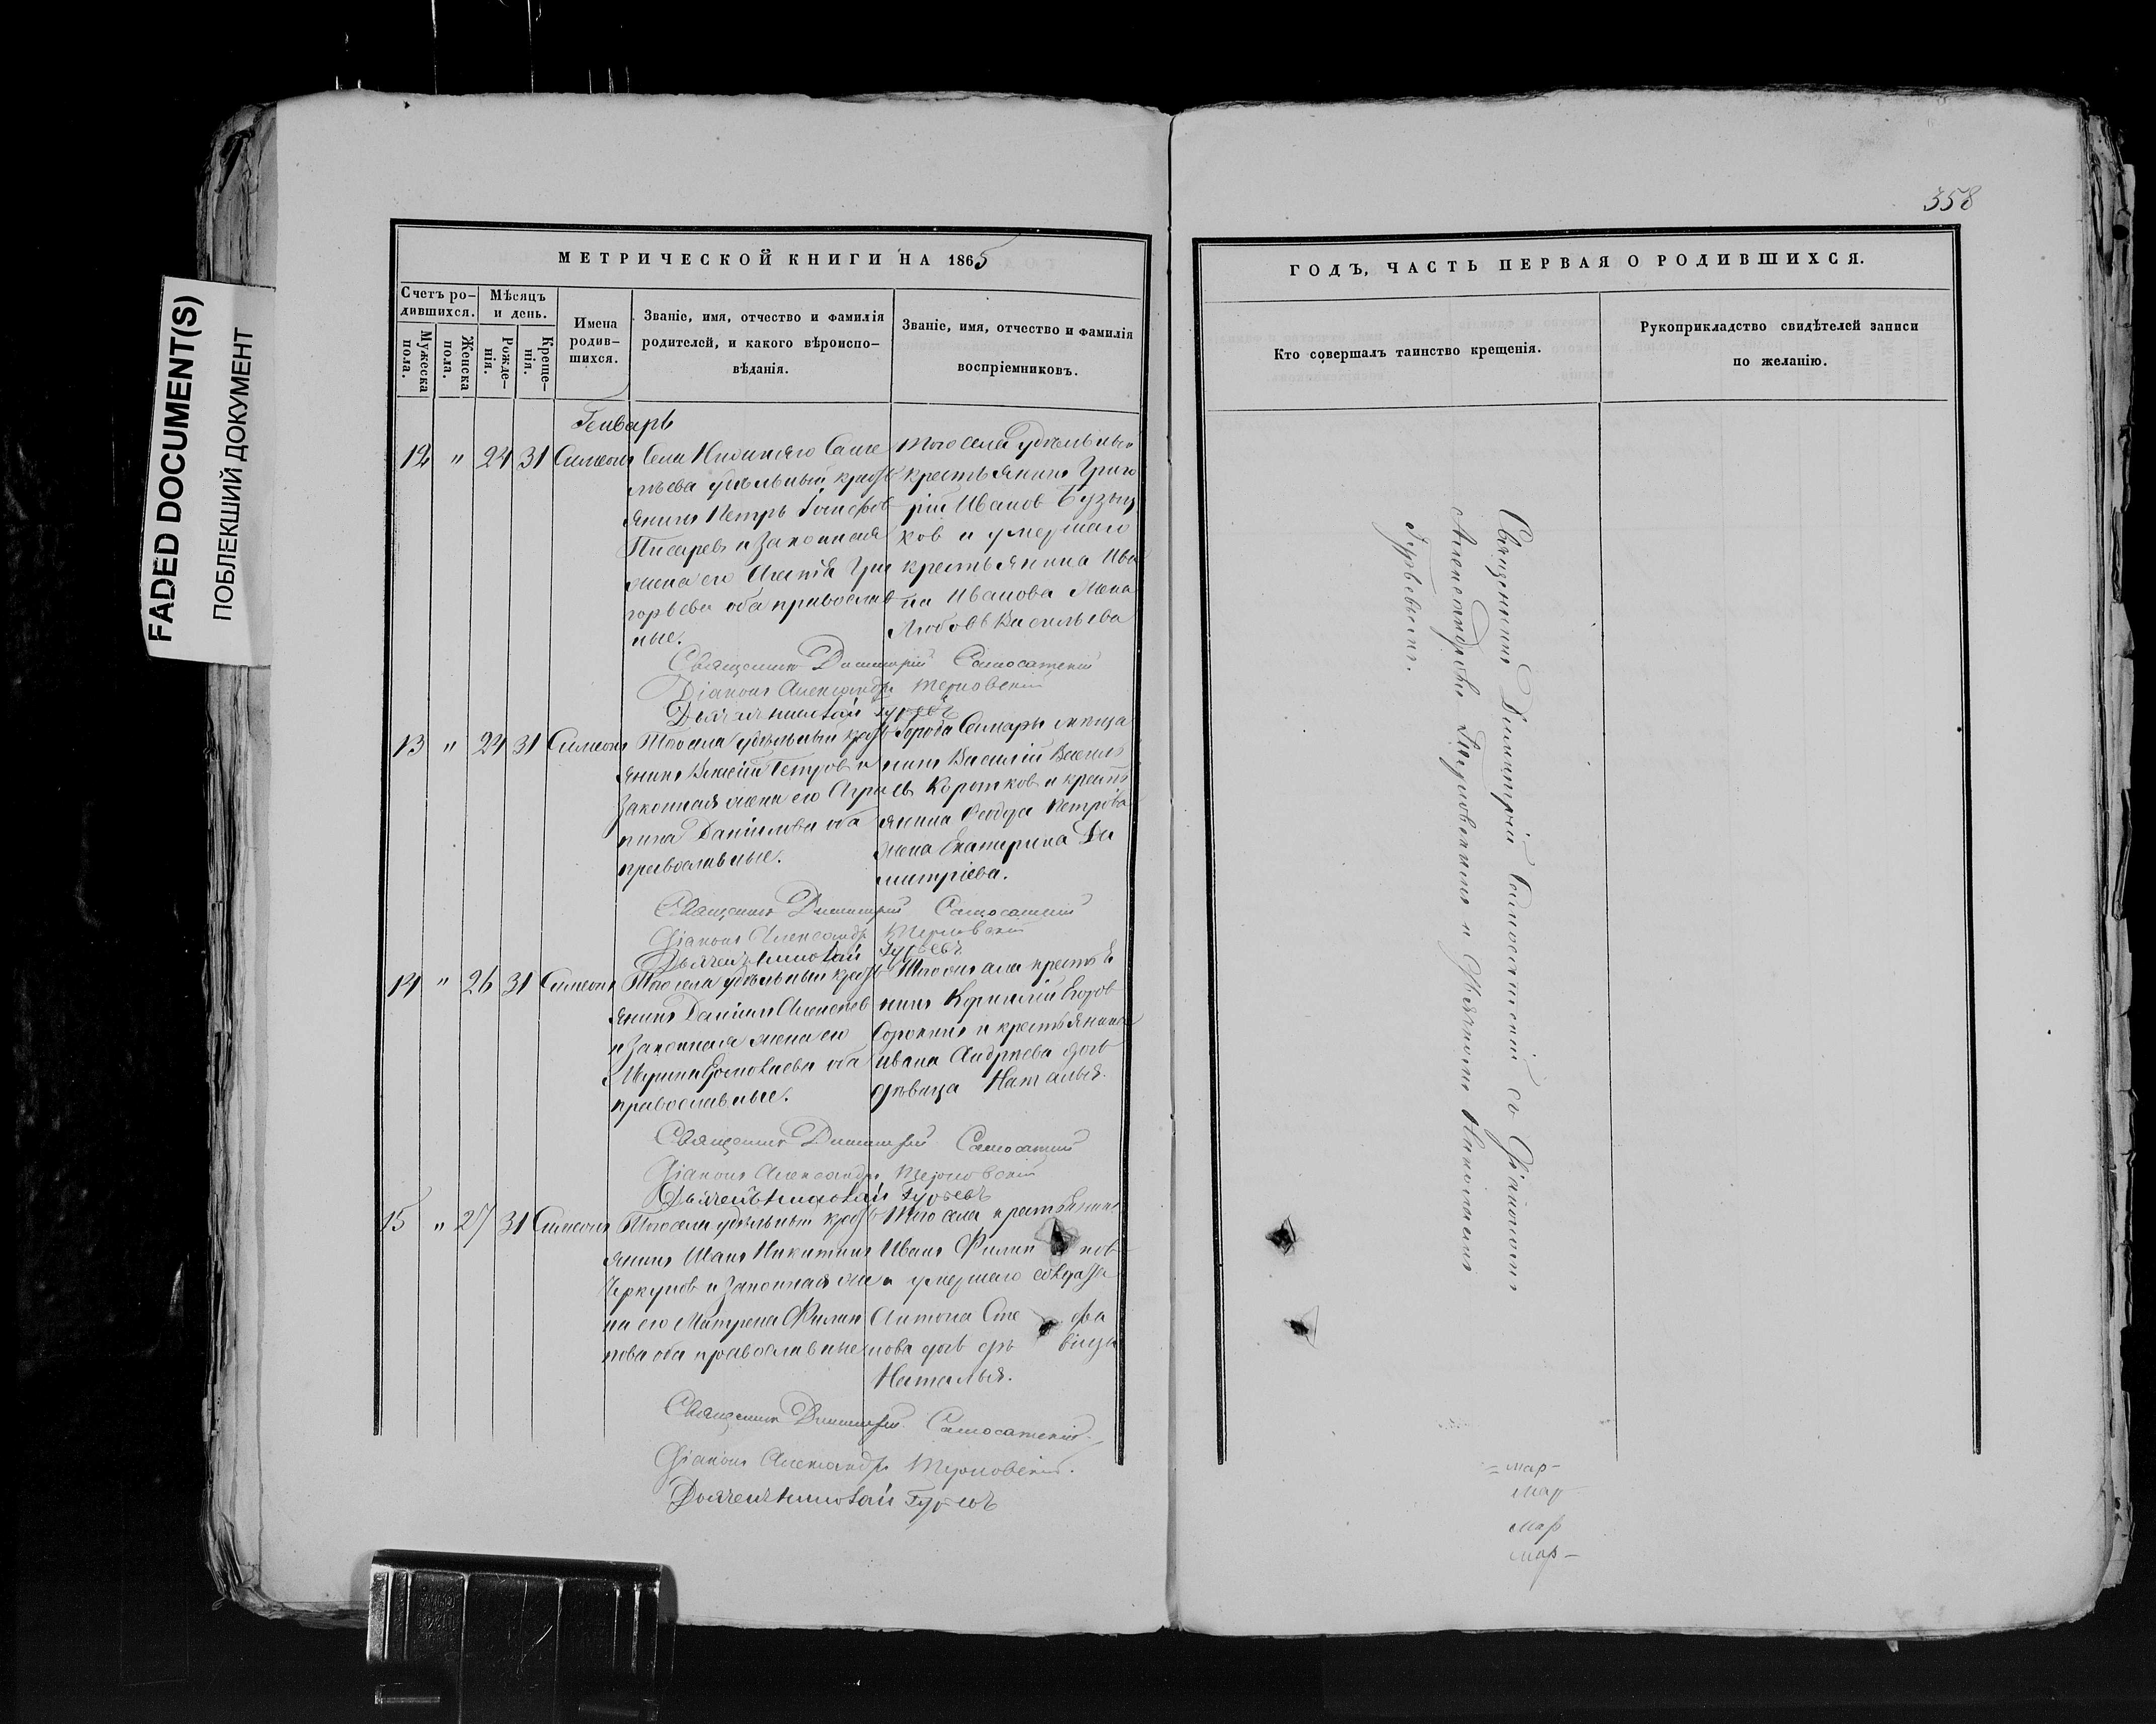 FADED DOCUMENT(S)
ПОБЛЕКШИЙ ДОКУМЕНТ
358
МЕТРИЧЕСКОЙ КНИГИ НА 1865
Счетъ ро-
дившихся.
Мѣсяцъ
и день.
Мужеска
пола.
Женска
пола.
Рожде-
нія.
Креще-
нія.
Имена
родив-
шихся.
Званіе, имя, отчество и фамилія
родителей, и какого вѣроиспо-
вѣданія.
Званіе, имя, отчество и фамилія
воспріемниковъ.
Генварь
12 " 24 31 Симеонъ
Села
удѣльный крест
янинъ Петръ Іосифов
Писаревъ и законная
жена его Агатія Гри
горьева оба православ
ные.
Того села удѣльный
крестьянинъ Григо
рій Иванов
ков и умершаго
крестьянина Ива
на Иванова жена
Любовь Васильева
Священникъ Димитрій Самосатскій
Діаконъ Александръ Терновскій
Дьячекъ Николай Гурьевъ
13 " 24 31 Симеонъ
Того села удѣльный крест
янинъ Петров и
законная жена его Агрип
пина Даніилова оба
православные.
Города Самары мѣща
нинъ Василій Василь
ев Коротков и кресть
янина Ѳеодора Петрова
жена Екатерина Ди
митріева.
Священникъ Димитрій Самосатскій
Діаконъ Александръ Терновскій
Дьячекъ Николай Гурьевъ
14 " 26 31 Симеонъ
Того села удѣльный крест
янинъ Даніилъ Алексѣев
и законная жена его
оба
православные.
Того села крестья
нинъ Корнилій Егоров
Сорокинъ и крестьянина
Ивана Андреева дочь
дѣвица Наталья.
Священникъ Димитрій Самосатскій
Діаконъ Александръ Терновскій
Дьячекъ Николай Гурьевъ
15 " 27 31 Симеонъ
Того села удѣльный крест
янинъ Иванъ Никитинъ
Черкунов и законная же
на его Матрена Филип
пова оба православные
Того села крестьянинъ
Иванъ Филип пов
и умершаго солдата
Антона Сте фа
нова дочь дѣ вица
Наталья.
Священникъ Димитрій Самосатскій
Діаконъ Александръ Терновскій.
Дьячекъ Николай Гурьевъ
ГОДЪ, ЧАСТЬ ПЕРВАЯ О РОДИВШИХСЯ.
Кто совершалъ таинство крещенія.
Рукоприкладство свидѣтелей записи
по желанію.
Священникъ Димитрій Самосатскій съ Діакономъ
Александромъ Терновскимъ и Дьячкомъ Николаемъ
Гурьевымъ.
= мар-
мар
мар
мар-